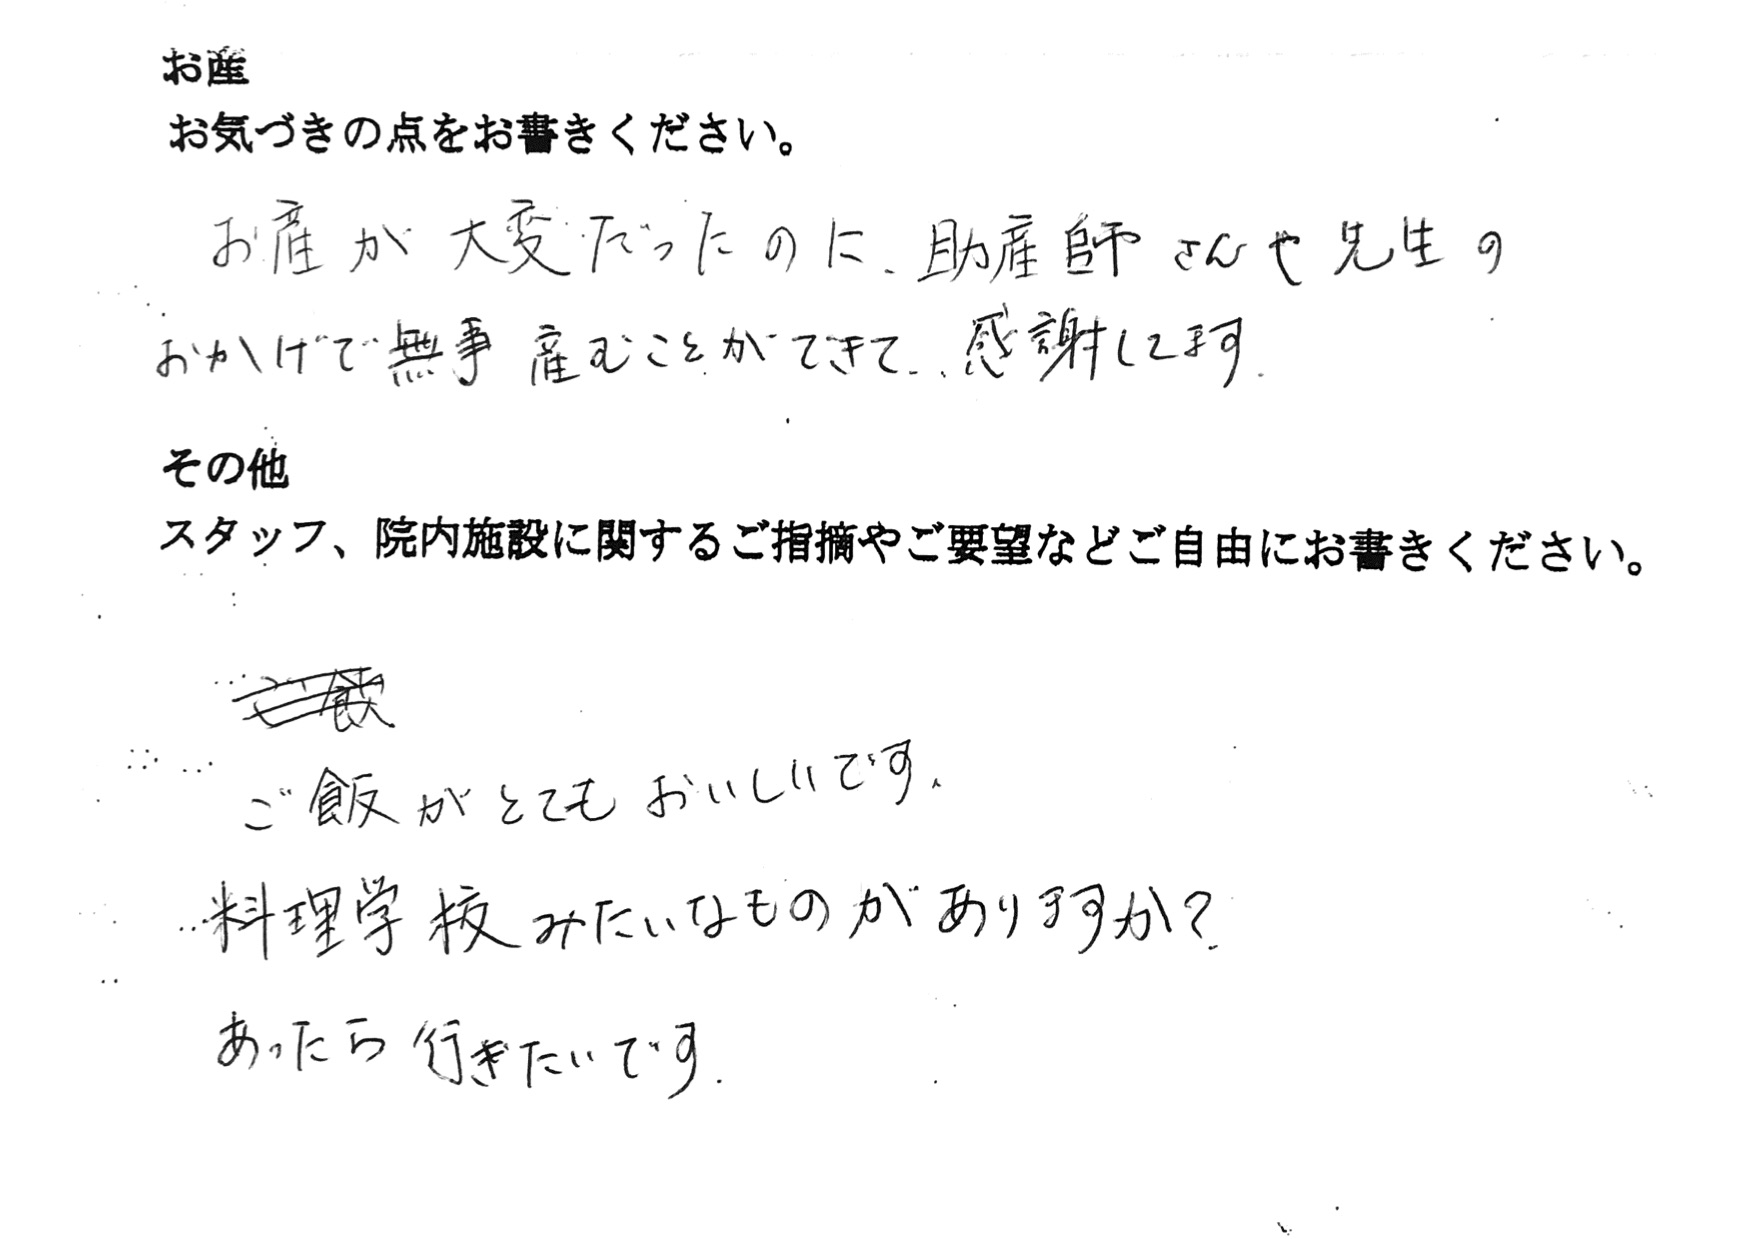 お産
お気づきの点をお書きください。
お産が大変だったのに、助産師さんや先生の
おかげで無事産むことができて、感謝してます.
その他
スタッフ、院内施設に関するご指摘やご要望などご自由にお書きください。
ご飯がとてもおいしいです、
料理学校みたいなものがありますか？
あったら行きたいです.